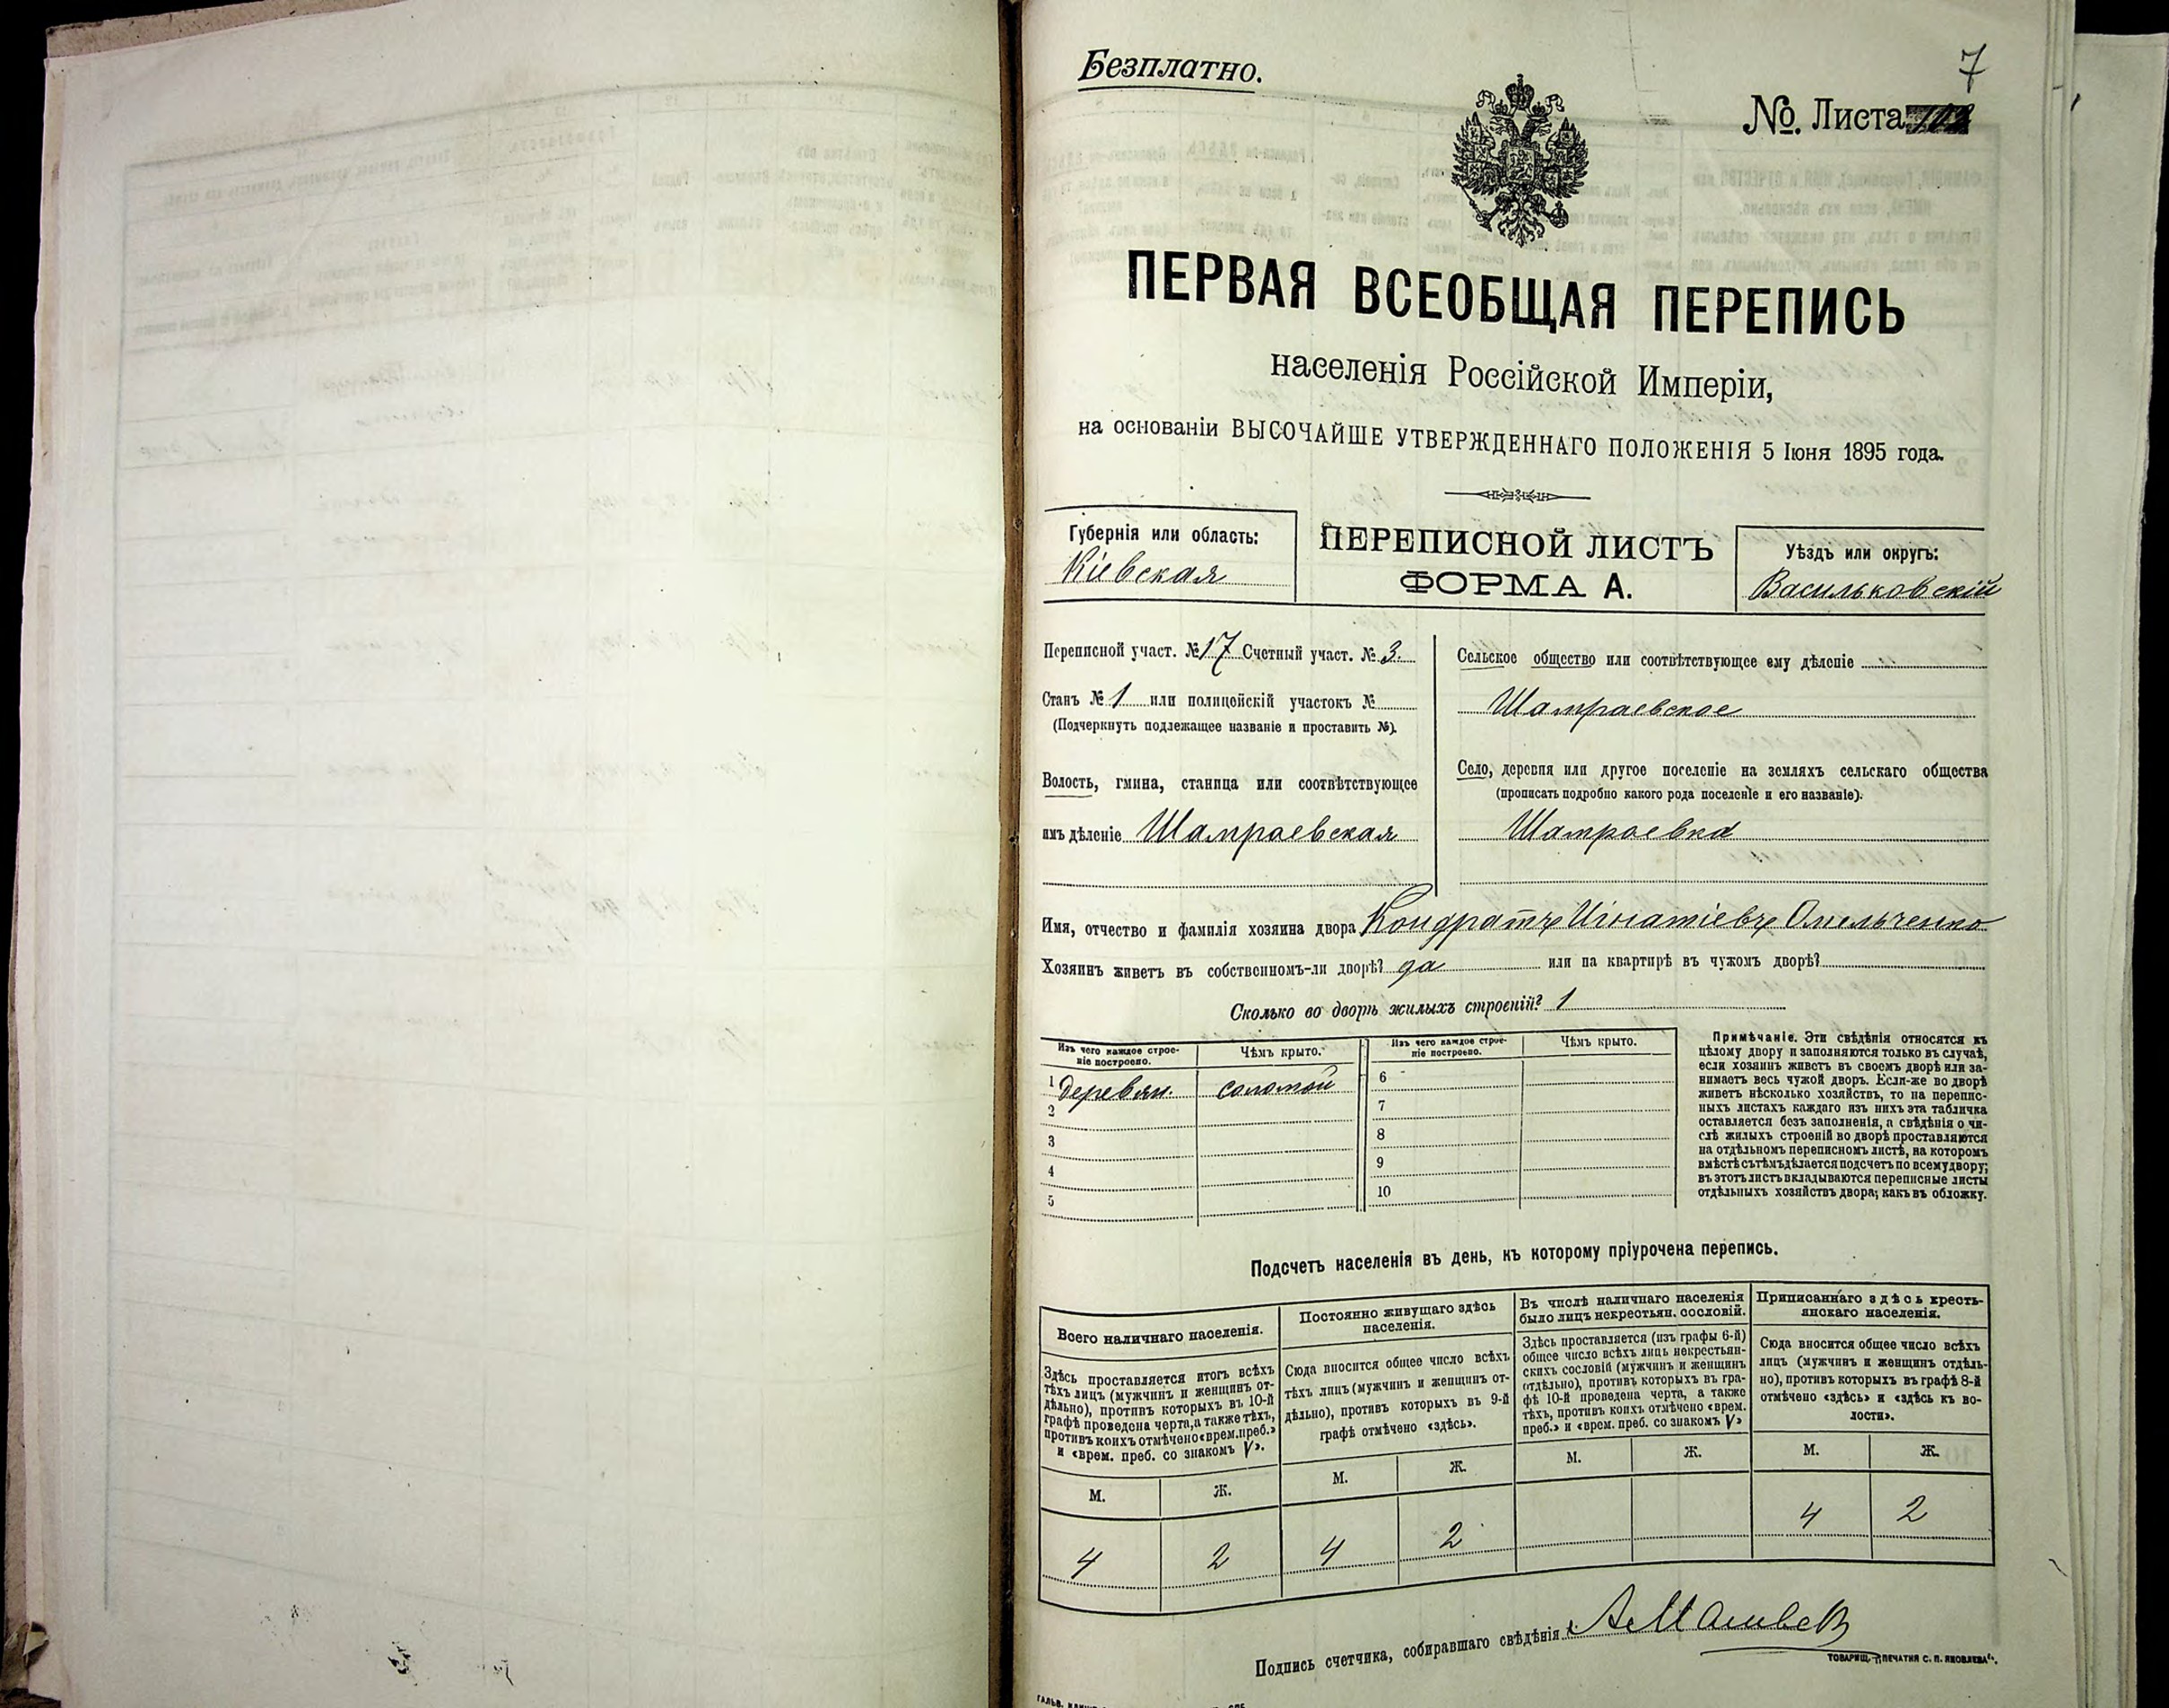 Безплатно.
7
№ Листа
ПЕРВАЯ ВСЕОБЩАЯ ПЕРЕПИСЬ
населенія Россійской Имперіи,
на основаніи ВЫСОЧАЙШЕ УТВЕРЖДЕННАГО ПОЛОЖЕНІЯ 5 Іюня 1895 года.
Губернія или область:
Кіевская
ПЕРЕПИСНОЙ ЛИСТЪ
ФОРМА А.
Уѣздъ или округъ:
Васильковскій
Переписной участ. № 17 Счетный участ. № 3.
Станъ № 1 или полицейскій участокъ №
(Подчеркнуть подлежащее названіе и проставить №).
Волость, гмина, станица или соотвѣтствующее
имъ дѣленіе Шамраевская
Сельское общество или соотвѣтствующее ему дѣленіе
Шамраевское
Село, деревня или другое поселеніе на земляхъ сельскаго общества
(прописать подробно какого рода поселеніе и его названіе).
Шамраевка
Имя, отчество и фамилія хозяина двора Кондратъ Игнатіевъ Омельченко
Хозяинъ живетъ въ собственномъ-ли дворѣ? да или на квартирѣ въ чужомъ дворѣ?
Сколько во дворѣ жилыхъ строеній? 1
Изъ чего каждое строе-
ніе построено.
Чѣмъ крыто.
1 деревян. соломой
2
3
4
5
Изъ чего каждое строе-
ніе построено.
Чѣмъ крыто.
6
7
8
9
10
Примѣчаніе. Эти свѣдѣнія относятся къ
цѣлому двору и заполняются только въ случаѣ,
если хозяинъ живетъ въ своемъ дворѣ или за-
нимаетъ весь чужой дворъ. Если-же во дворѣ
живетъ нѣсколько хозяйствъ, то на перепис-
ныхъ листахъ каждаго изъ нихъ эта табличка
оставляется безъ заполненія, а свѣдѣнія о чи-
слѣ жилыхъ строеній во дворѣ проставляются
на отдѣльномъ переписномъ листѣ, на которомъ
вмѣстѣ съ тѣмъ дѣлается подсчетъ по всему двору;
въ этотъ листъ вкладываются переписные листы
отдѣльныхъ хозяйствъ двора, какъ въ обложку.
Подсчетъ населенія въ день, къ которому пріурочена перепись.
Всего наличнаго населенія.
Здѣсь проставляется итогъ всѣхъ
тѣхъ лицъ (мужчинъ и женщинъ от-
дѣльно), противъ которыхъ въ 10-й
графѣ проведена черта, а также тѣхъ,
противъ коихъ отмѣчено «врем. преб.»
и «врем. преб. со знакомъ V».
М. Ж.
4 2
Постоянно живущаго здѣсь
населенія.
Сюда вносится общее число всѣхъ
тѣхъ лицъ (мужчинъ и женщинъ от-
дѣльно), противъ которыхъ въ 9-й
графѣ отмѣчено «здѣсь».
М. Ж.
4 2
Въ числѣ наличнаго населенія
было лицъ некрестьян. сословій.
Здѣсь проставляется (изъ графы 6-й)
общее число всѣхъ лицъ некрестьян-
скихъ сословій (мужчинъ и женщинъ
отдѣльно), противъ которыхъ въ гра-
фѣ 10-й проведена черта, а также
тѣхъ, противъ коихъ отмѣчено «врем.
преб.» и «врем. преб. со знакомъ V»
М. Ж.
Приписаннаго здѣсь кресть-
янскаго населенія.
Сюда вносится общее число всѣхъ
лицъ (мужчинъ и женщинъ отдѣль-
но), противъ которыхъ въ графѣ 8-й
отмѣчено «здѣсь» и «здѣсь къ во-
лости».
М. Ж.
4 2
Подпись счетчика, собиравшаго свѣдѣнія
ТОВАРИЩ. ПЕЧАТНЯ С. П. ЯКОВЛЕВА